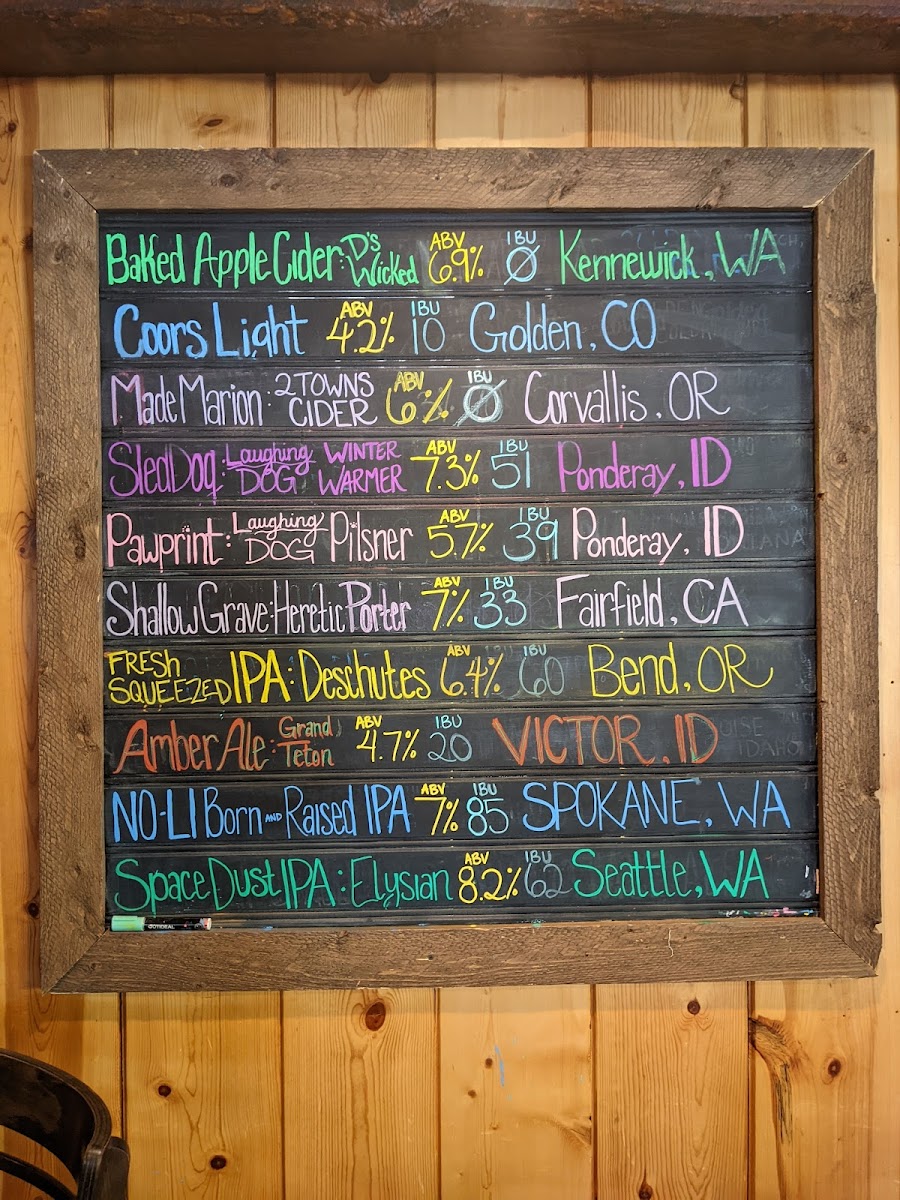 Baked Apple Cider: D's Wicked ABV 6.9% IBU Ø Kennewick, WA
Coors Light ABV 4.2% IBU 10 Golden, CO
Made Marion: 2 TOWNS CIDER ABV 6% IBU Ø Corvallis, OR
Sled Dog: Laughing DOG WINTER WARMER ABV 7.3% IBU 51 Ponderay, ID
Pawprint: Laughing DOG Pilsner ABV 5.7% IBU 39 Ponderay, ID
Shallow Grave: Heretic Porter ABV 7% IBU 33 Fairfield, CA
FRESH SQUEEZED IPA: Deschutes ABV 6.4% IBU 60 Bend, OR
Amber Ale: Grand Teton ABV 4.7% IBU 20 VICTOR, ID
NO-LI Born AND Raised IPA ABV 7% IBU 85 SPOKANE, WA
Space Dust IPA: Elysian ABV 8.2% IBU 62 Seattle, WA